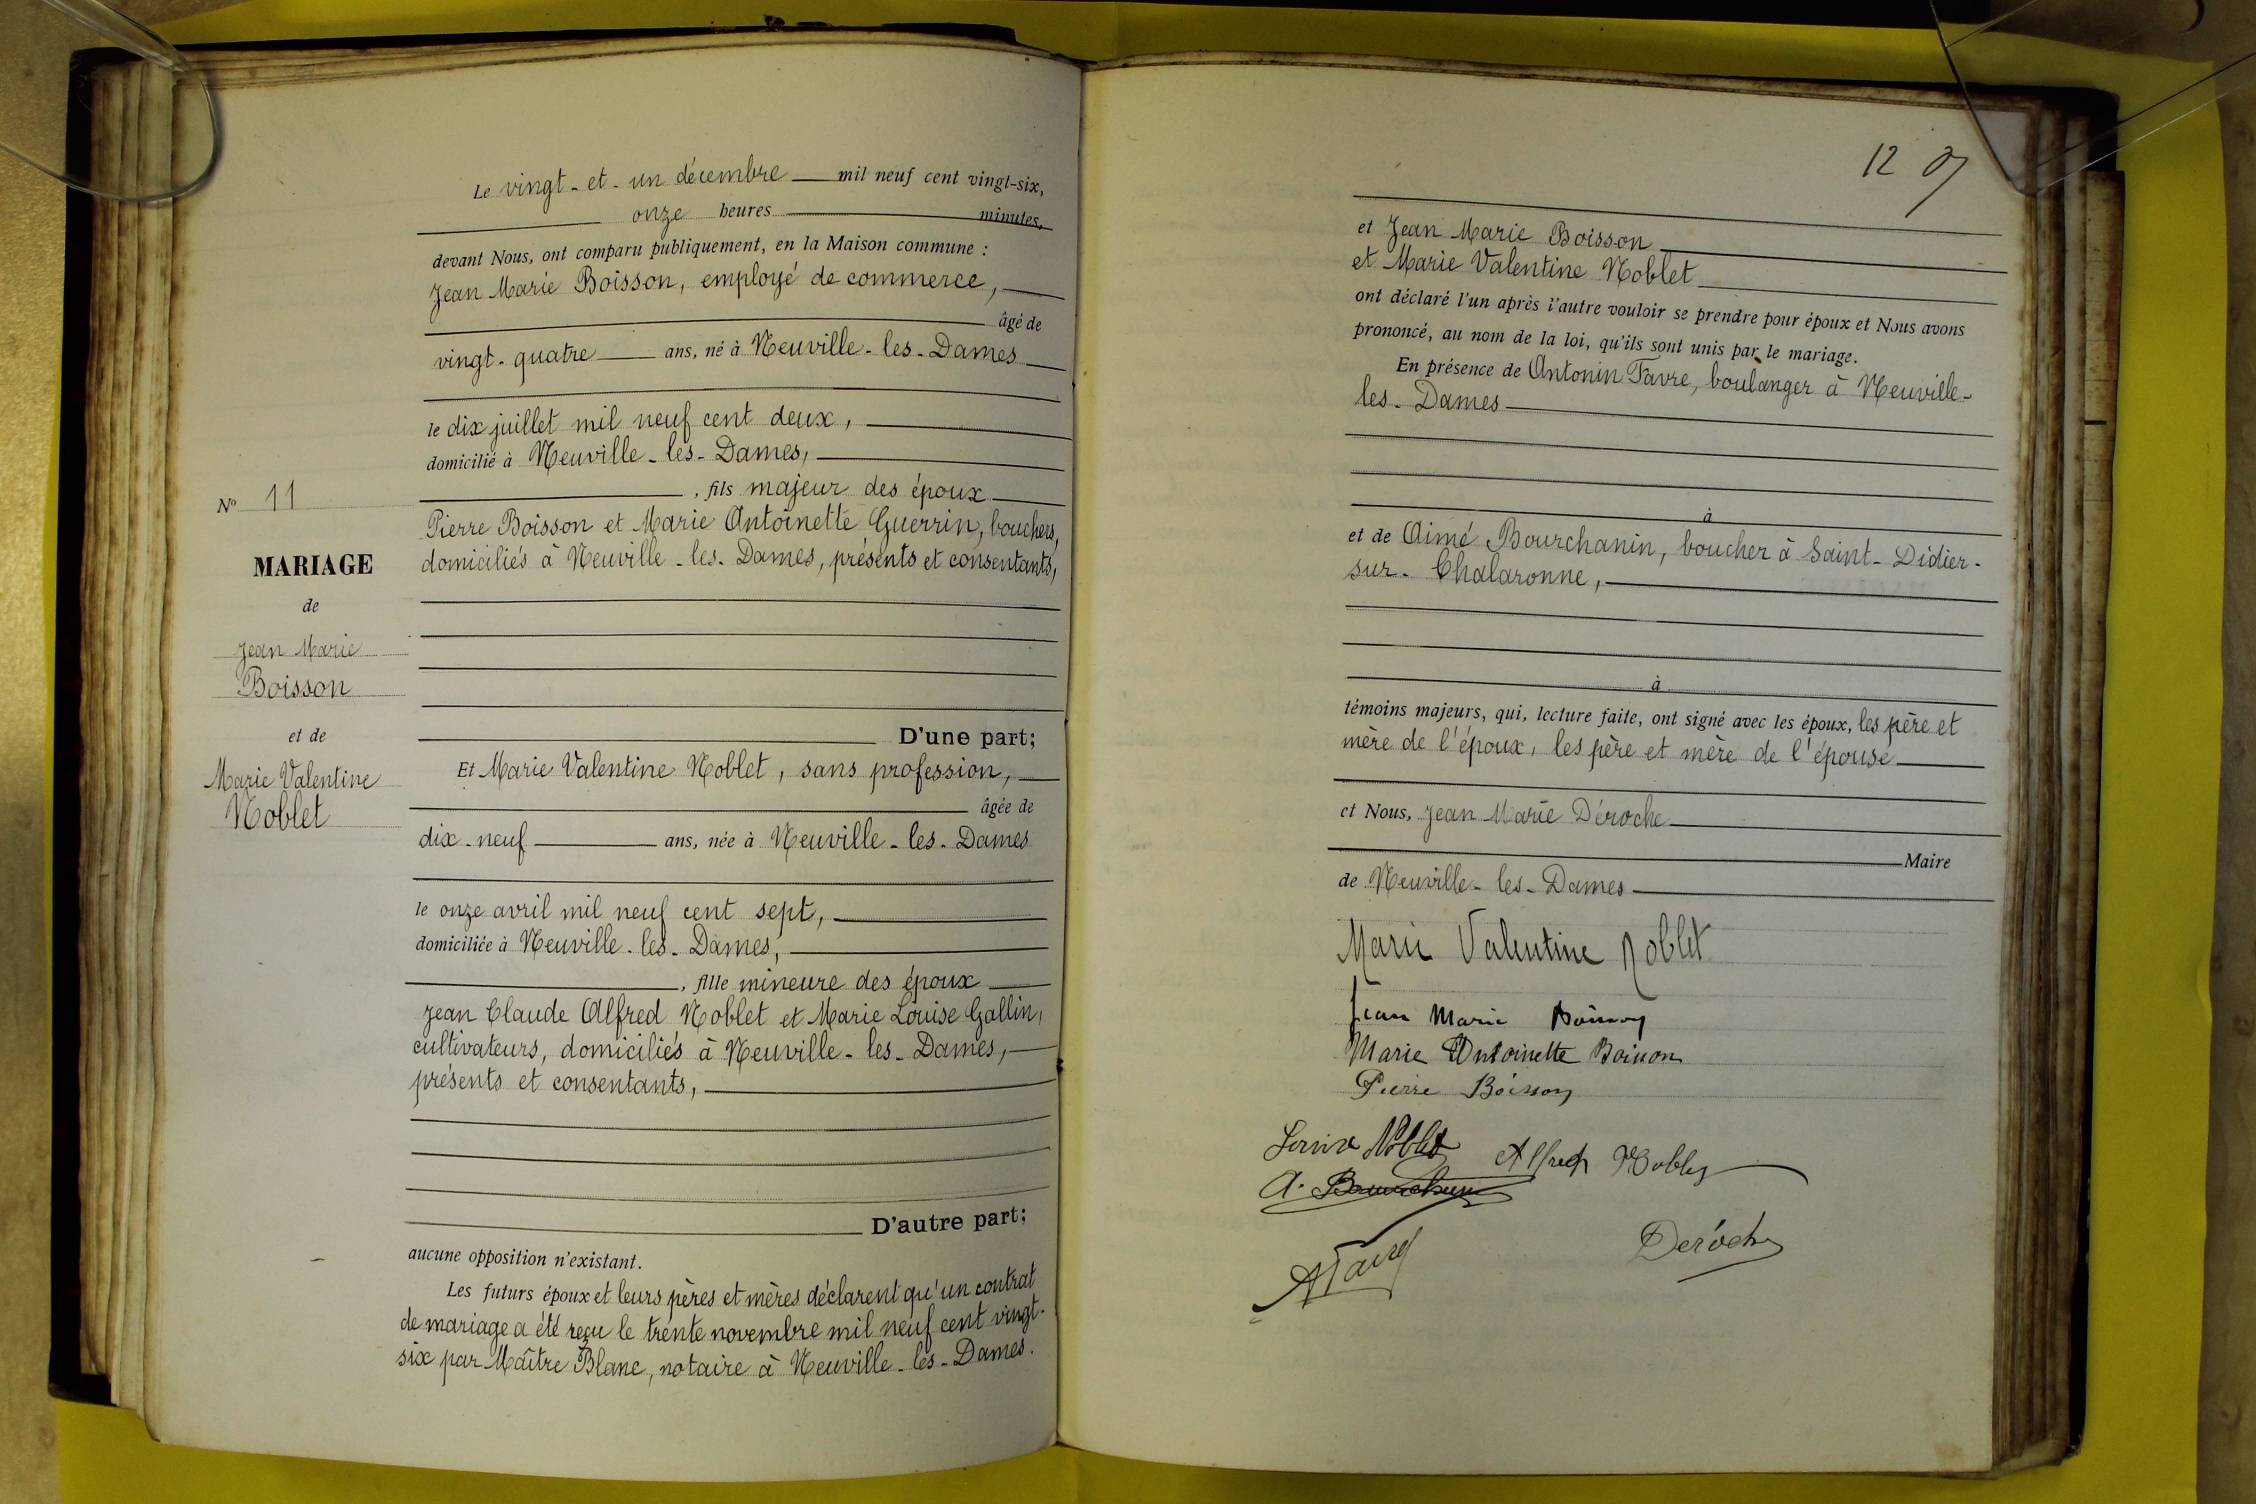 Le vingt-et-un décembre mil neuf cent vingt-six,
onze heures minutes,
devant Nous, ont comparu publiquement, en la Maison commune :
Jean Marie Boisson, employé de commerce,
âgé de
vingt-quatre ans, né à Neuville-les-Dames
le dix juillet mil neuf cent deux,
domicilié à Neuville-les-Dames,
, fils majeur des époux
Pierre Boisson et Marie Antoinette Guerrin, bouchers,
domiciliés à Neuville-les-Dames, présents et consentants,
D'une part;
Et Marie Valentine Noblet, sans profession,
âgée de
dix-neuf ans, née à Neuville-les-Dames
le onze avril mil neuf cent sept,
domiciliée à Neuville-les-Dames,
, fille mineure des époux
Jean Claude Alfred Noblet et Marie Louise Gallin,
cultivateurs, domiciliés à Neuville-les-Dames,
présents et consentants,
D'autre part;
aucune opposition n'existant.
Les futurs époux et leurs pères et mères déclarent qu'un contrat
de mariage a été reçu le trente novembre mil neuf cent vingt-
six par Maître Blanc, notaire à Neuville-les-Dames.
N° 11
MARIAGE
de
Jean Marie
Boisson
et de
Marie Valentine
Noblet
12
et Jean Marie Boisson
et Marie Valentine Noblet
ont déclaré l'un après l'autre vouloir se prendre pour époux et Nous avons
prononcé, au nom de la loi, qu'ils sont unis par le mariage.
En présence de Antonin Favre, boulanger à Neuville-
les-Dames
à
et de Aimé Bourchanin, boucher à Saint-Didier-
sur-Chalaronne,
à
témoins majeurs, qui, lecture faite, ont signé avec les époux, les père et
mère de l'époux, les père et mère de l'épouse
et Nous, Jean Marie Déroche
Maire
de Neuville-les-Dames
Marie Valentine Noblet
Jean Marie Boisson
Marie Antoinette Boisson
Pierre Boisson
Louise Noblet Alfred Noblet
A. Bourchanin
A Favre
Deroche